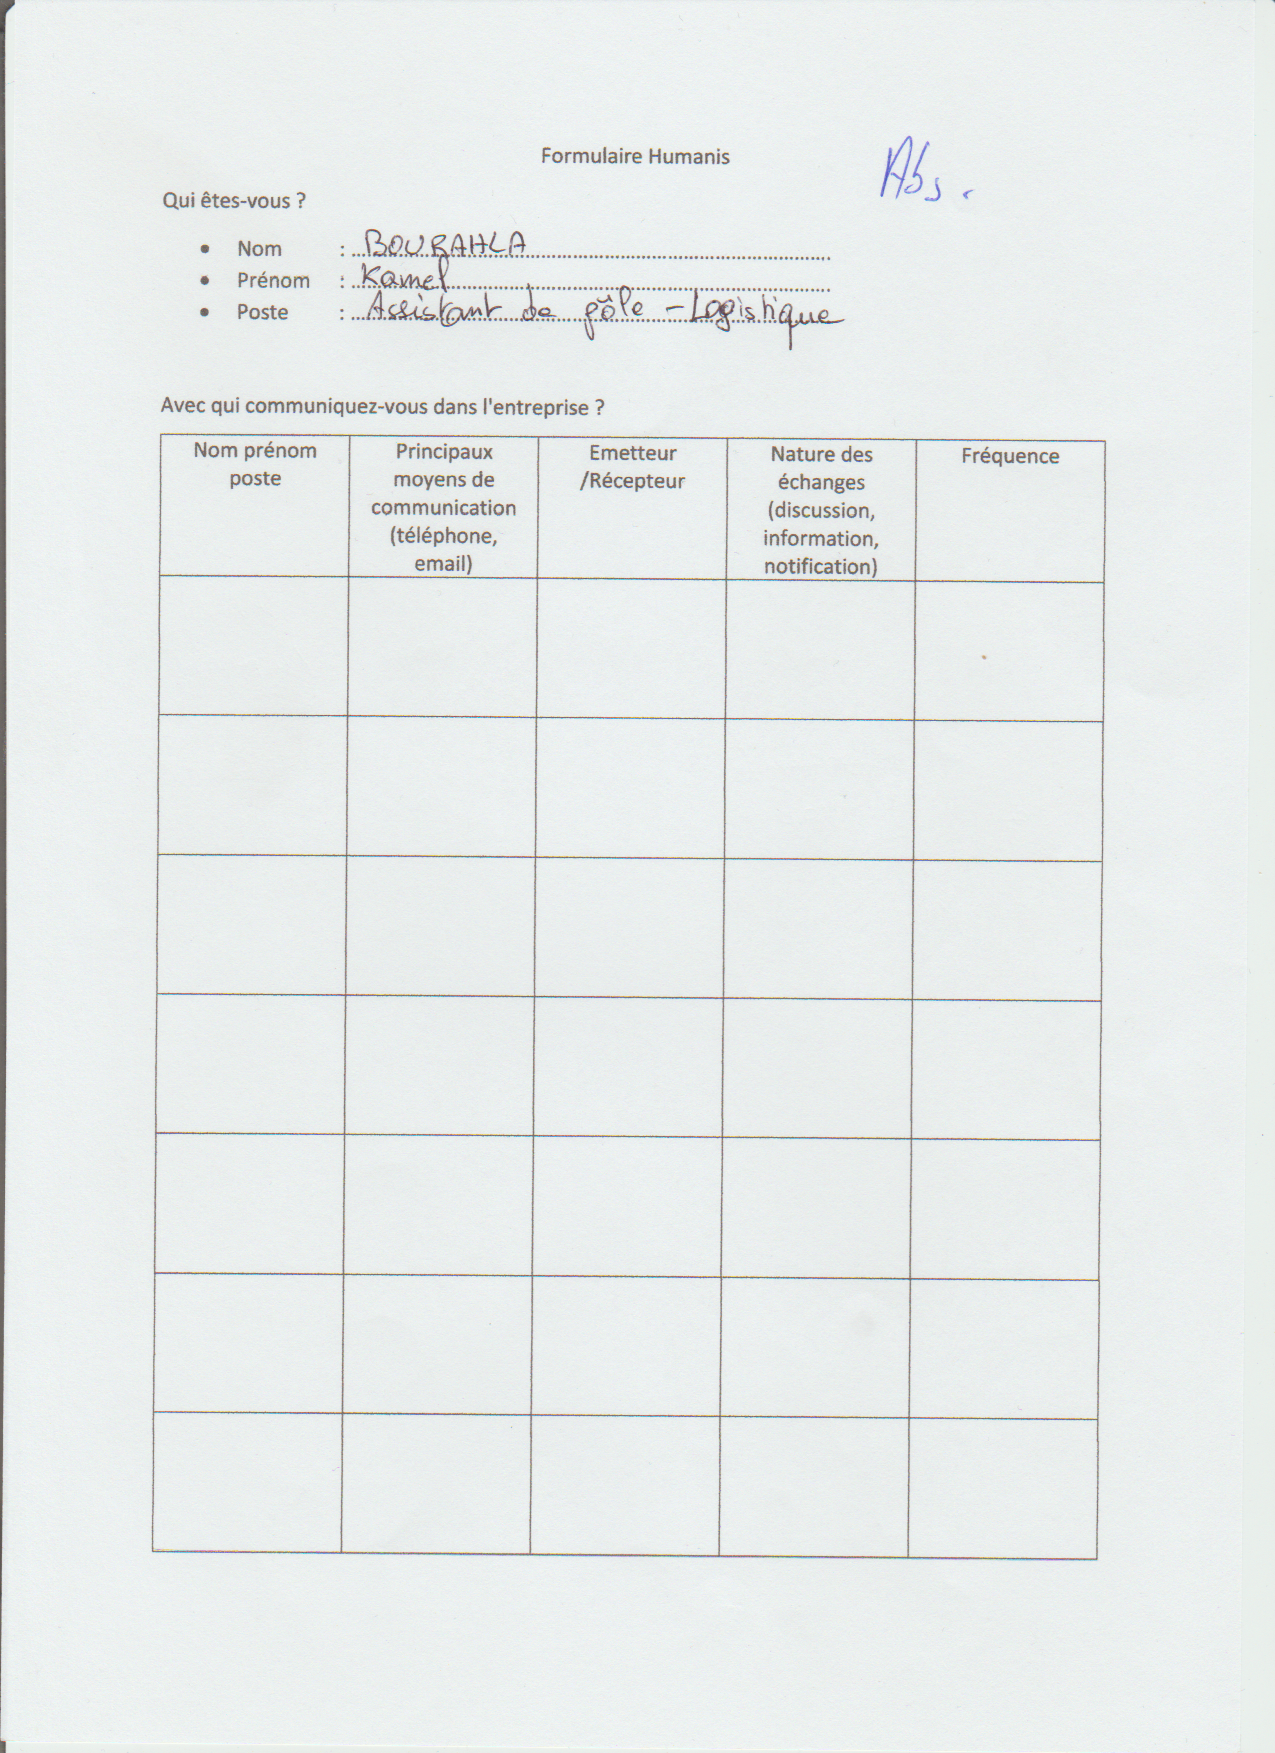 Formulaire Humanis
Abs.
Qui êtes-vous ?
• Nom : BOURAHLA
• Prénom : Kamel
• Poste : Assistant de pôle - Logistique
Avec qui communiquez-vous dans l'entreprise ?
Nom prénom
poste
Principaux
moyens de
communication
(téléphone,
email)
Emetteur
/Récepteur
Nature des
échanges
(discussion,
information,
notification)
Fréquence